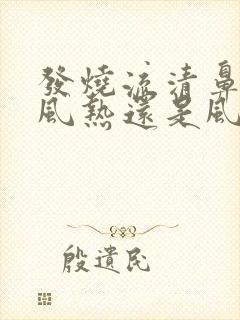 發燒流清鼻
風熱還是風
殷遺民